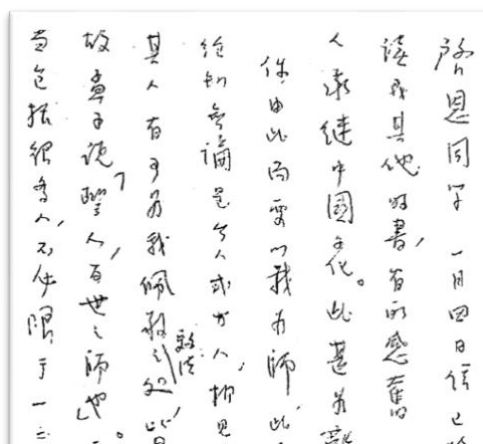 恩同学 一月四日信已
读我其他的書,有所感奮
人承继中國文化。此甚为
你由此而要以我为師,此
無論是今人或古人,
其人有可为我佩敬效法之处,此
故孟子说「聖人,百世之師也」。
当包括很多人,不使限于一二